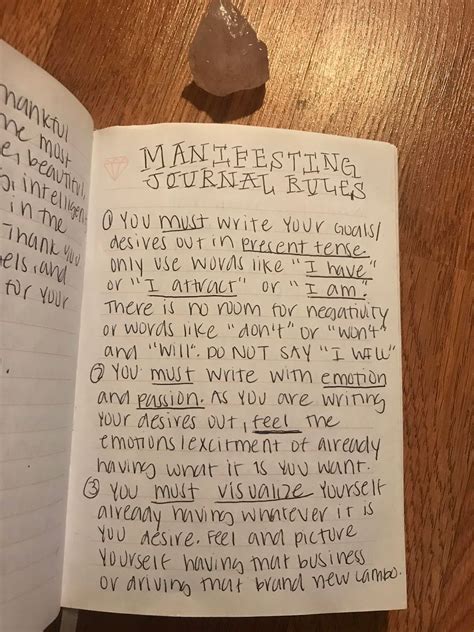 thankful
the most
beautiful,
intelligent
in the
Thank you
and
for your
MANIFESTING
JOURNAL RULES
① YOU must write your goals/
desires out in present tense
only use words like "I have"
or "I attract" or "I am".
There is no room for negativity
or words like "don't" or "won't"
and "will". DO NOT SAY "I WILL"
② YOU must write with emotion
and passion. As you are writing
your desires out, feel the
emotions/excitment of already
having what it is you want.
③ YOU must visualize yourself
already having whatever it is
you desire. Feel and picture
yourself having that business
or driving that brand new lambo.